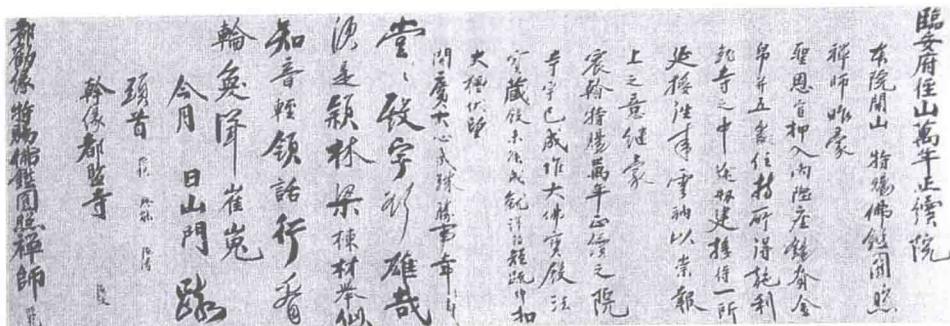 臨安府徑山萬年正續院
本院開山 特賜佛鑑圓照
禪師昨蒙
聖恩宣押入內陞座錫賚金
帛并五處住持所得施利
就寺之中途建接待一所
延接往來雲衲以崇報
上之意繼蒙
宸翰特賜萬年正續之院
寺宇已成唯大佛寶殿法
藏殿未能成就謹持短疏仰扣
大檀伏望
開廣大心成殊勝事幸
堂々殿宇雄哉
須是穎林梁棟材舉似
知音輕領話行看
輪奐聳崔嵬
今月 日山門 疏
頭首
幹緣都監寺
都勸緣特賜佛鑑圓照禪師